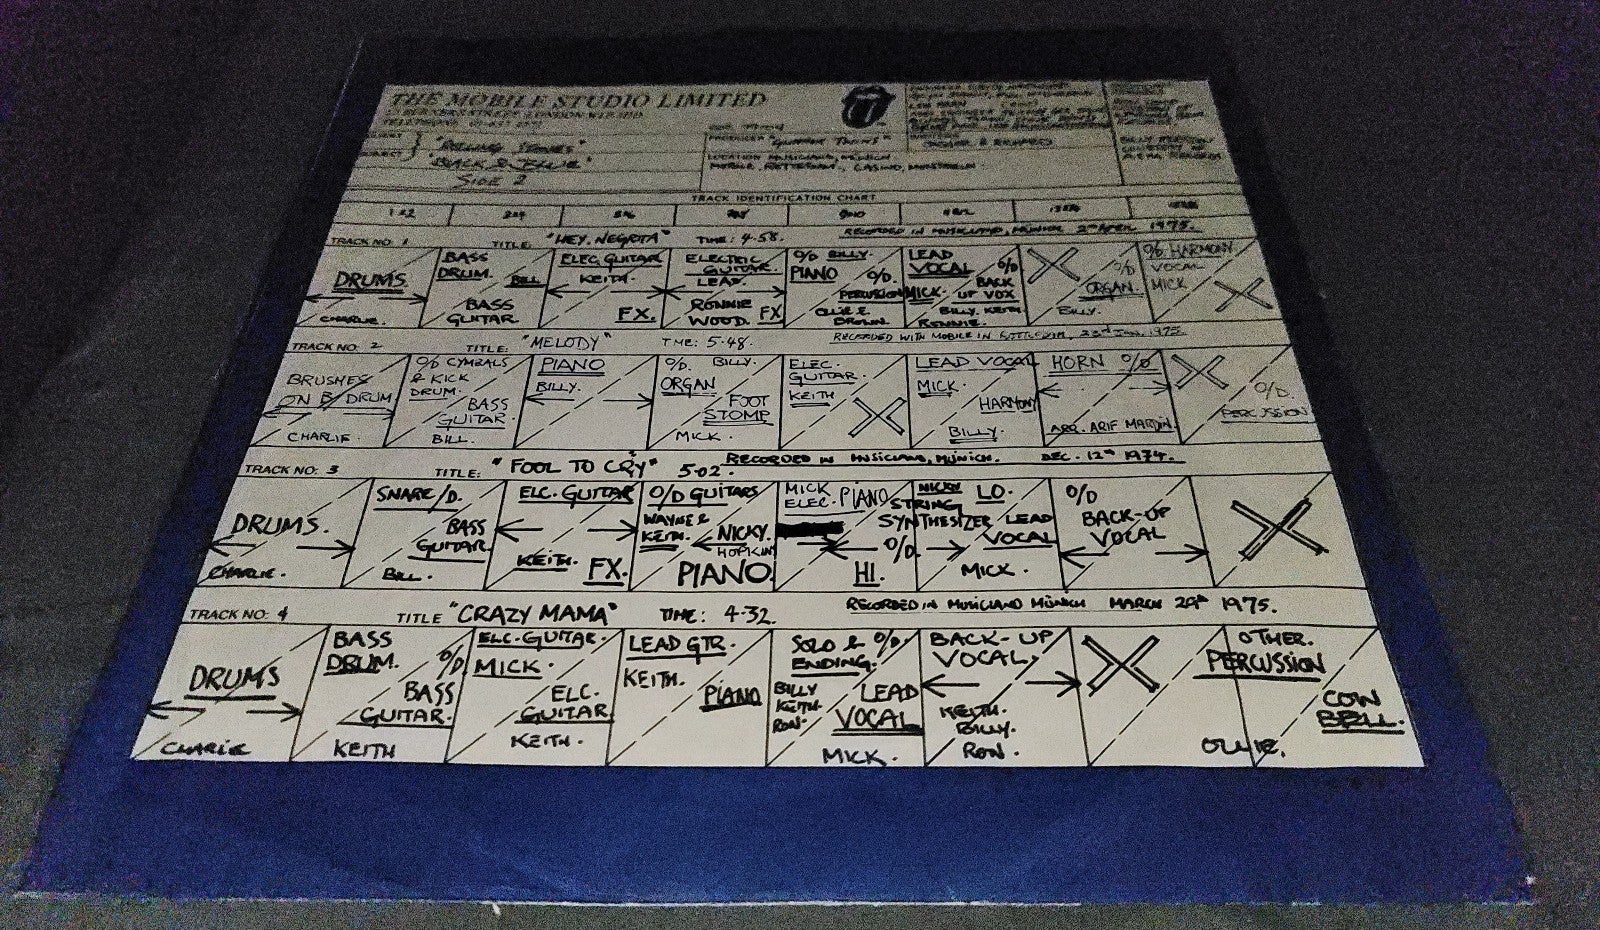 THE MOBILE STUDIO LIMITED
"ROLLING STONES"
"BLACK & BLUE"
SIDE 2
PRODUCER "GLIMMER TWINS"
LOCATION MUSICLAND, MUNICH
MOBILE ROTTERDAM, CASINO, MONTREUX
TRACK IDENTIFICATION CHART
TRACK NO: 1 TITLE: "HEY. NEGRITA" TIME: 4·58. RECORDED IN MUSICLAND, MUNICH 2ND APRIL 1975.
DRUMS.
CHARLIE.
BASS
DRUM.
BILL
BASS
GUITAR
ELEC GUITAR
KEITH.
FX.
ELECTRIC
GUITAR.
LEAD.
RONNIE
WOOD. FX
O/D BILLY.
PIANO O/D.
PERCUSSION
OLLIE E
BROWN.
LEAD
VOCAL O/D
MICK. BACK
UP VOX
BILLY. KEITH
RONNIE.
O/D
ORGAN.
BILLY.
O/D HARMONY
VOCAL
MICK
TRACK NO: 2 TITLE: "MELODY" TIME: 5·48. RECORDED WITH MOBILE IN ROTTERDAM, 23RD JAN. 1975
BRUSHES
ON B/DRUM
CHARLIE.
O/D CYMBALS
& KICK
DRUM.
BASS
GUITAR.
BILL.
PIANO
BILLY.
O/D. BILLY.
ORGAN
FOOT
STOMP
MICK.
ELEC.
GUITAR.
KEITH
LEAD VOCAL
MICK.
HARMONY
BILLY.
HORN O/D
ARR. ARIF MARDIN.
O/D.
PERCUSSION
TRACK NO: 3 TITLE: "FOOL TO CRY" 5·02. RECORDED IN MUSICLAND, MUNICH. DEC. 12TH 1974.
DRUMS.
CHARLIE.
SNARE/D.
BASS
GUITAR.
BILL.
ELC. GUITAR
KEITH. FX.
O/D GUITARS
WAYNE &
KEITH.
NICKY.
HOPKINS
PIANO.
MICK
ELEC. PIANO
NICKY
STRING
SYNTHESIZER
O/D.
HI.
LO.
LEAD
VOCAL
MICK.
O/D
BACK-UP
VOCAL
TRACK NO: 4 TITLE "CRAZY MAMA" TIME: 4·32. RECORDED IN MUSICLAND MUNICH MARCH 29TH 1975.
DRUMS
CHARLIE
BASS
DRUM.
O/D
BASS
GUITAR.
KEITH
ELC. GUITAR.
MICK.
ELC.
GUITAR
KEITH.
LEAD GTR.
KEITH.
PIANO
SOLO & O/D.
ENDING.
BILLY
KEITH.
RON.
LEAD
VOCAL
MICK.
BACK-UP
VOCAL
KEITH.
BILLY.
RON.
OTHER.
PERCUSSION
COW
BELL.
OLLIE.